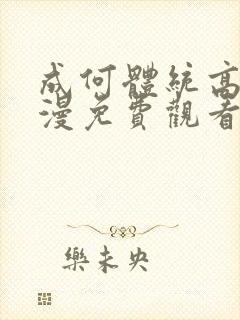 成何體統高
漫免費觀看
樂未央